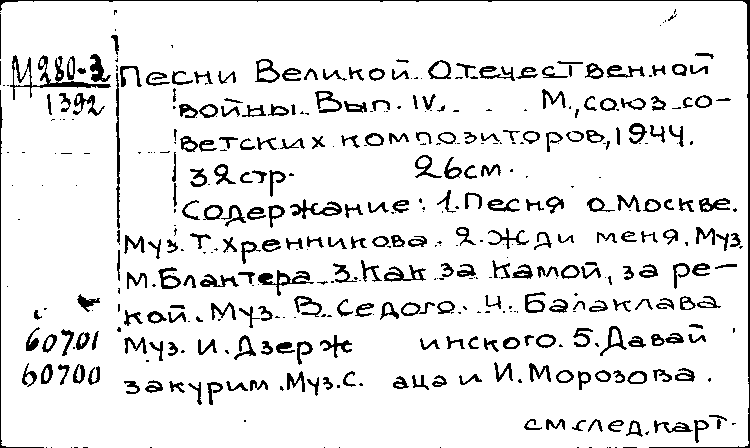 М 280-3
1392
Песни Великой Отечественной
войны. Вып. IV. М., союз со-
ветских композиторов, 1944.
32стр. 26см.
Содержание: 1.Песня о Москве.
Муз. Т. Хренникова. 2. Жди меня. Муз.
М. Блантера 3. Как за Камой, за ре-
кой. Муз. В. Седого. 4. Балаклава
60701 Муз. И. Дзерж инского. 5. Давай
60700 закурим. Муз. С. аца и И. Морозова.
см след. карт.